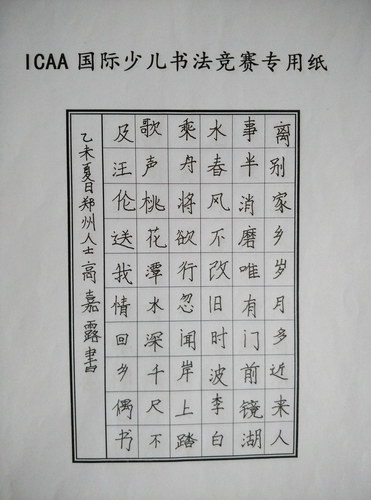 ICAA 国际少儿书法竞赛专用纸
离别家乡岁月多近来人
事半消磨唯有门前镜湖
水春风不改旧时波李白
乘舟将欲行忽闻岸上踏
歌声桃花潭水深千尺不
及汪伦送我情回乡偶书
乙未夏日郑州人士高嘉露書